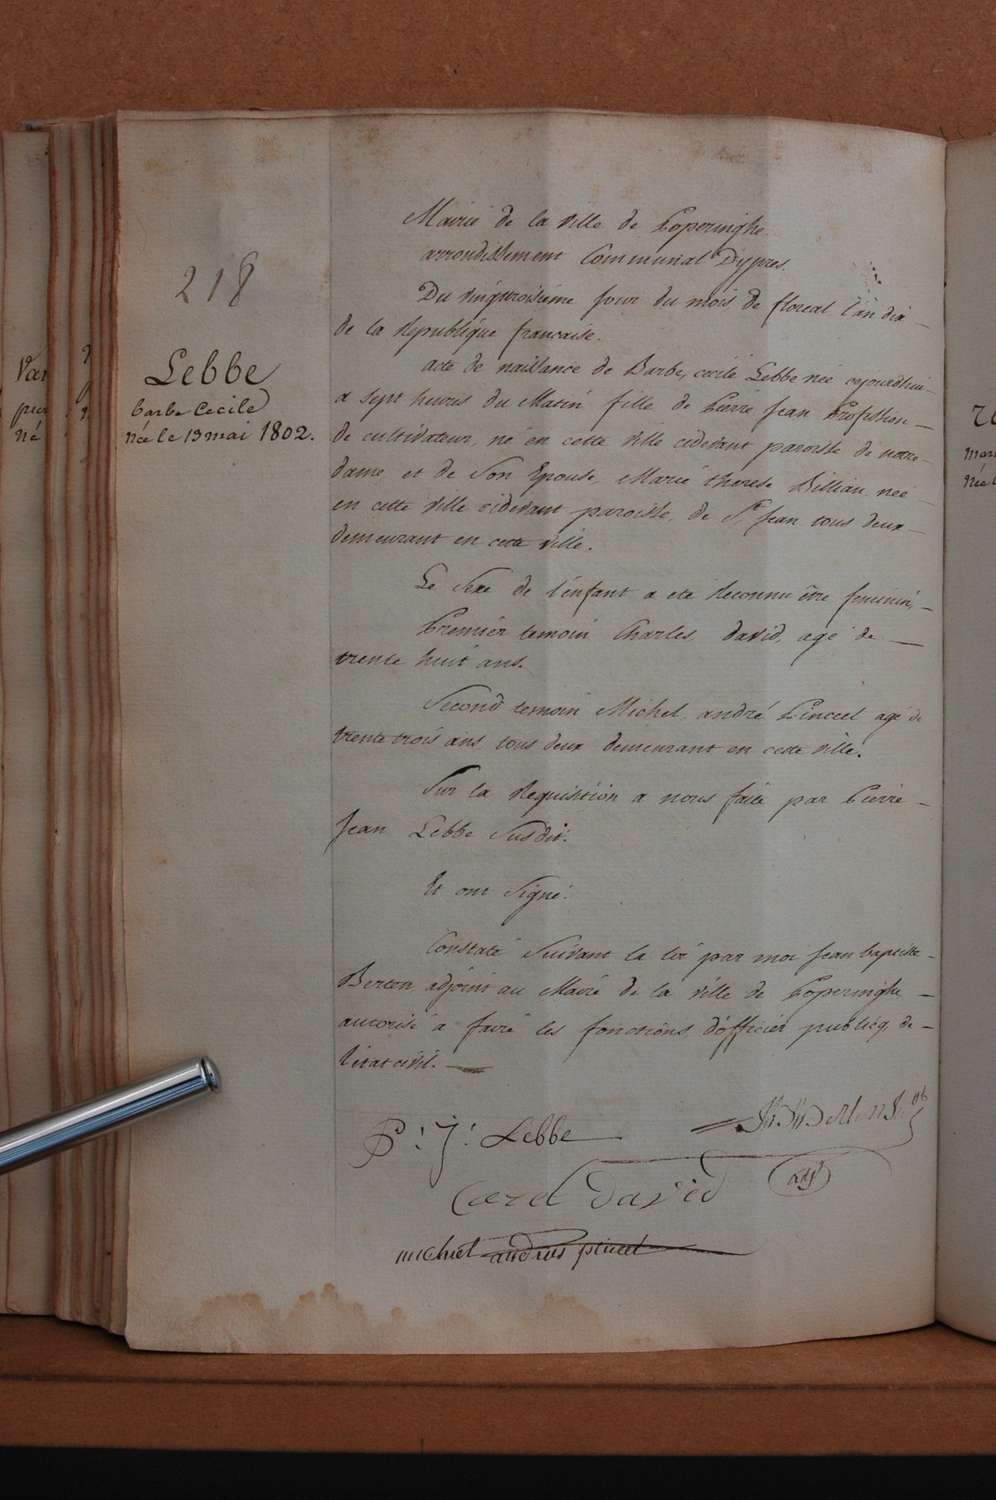 218
Lebbe
barbe Cecile
née le 13 mai 1802.
Mairie de la ville de Poperinghe
arrondissement Communal Dypres.
Du vingtroisieme jour du mois de floreal l'an dix
de la republique francaise.
acte de naissance de Barbe, cecile Lebbe née cejourdhui
a sept heures du Matin fille de Pierre Jean Profession
de cultivateur, né en cette ville cidevant paroisse de notre
dame, et de Son Epouse Marie therese Dillian née
en cette ville cidevant paroisse, de St Jean tous deux
demeurant en cette ville.
Le Sexe de l'enfant a eté Reconnu être feminin,
Premier temoin Charles david, agé de
trente huit ans.
Second temoin Michel andré Pinceel agé de
trente trois ans tous deux demeurant en cette ville.
Sur la Requisition a nous faite par Pierre
Jean Lebbe Susdit.
Et ont Signé.
Constaté Suivant la loi par moi Jean baptiste
Berten adjoint au Maire de la ville de Poperinghe
autorisé a faire les fonctions d'officier publicq de
l'etat civil.
P: J: Lebbe
Carel David
adjt
michiel andries pincel
Van
né
née l